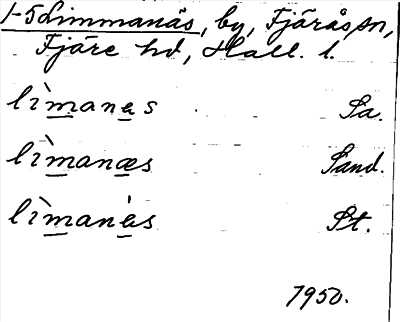 1-5 Limmanäs, by, Fjärås sn,
Fjäre hd, Hall. l.
lìmanes Sa.
lìmanæs Sand.
lìmanès St.
1950.